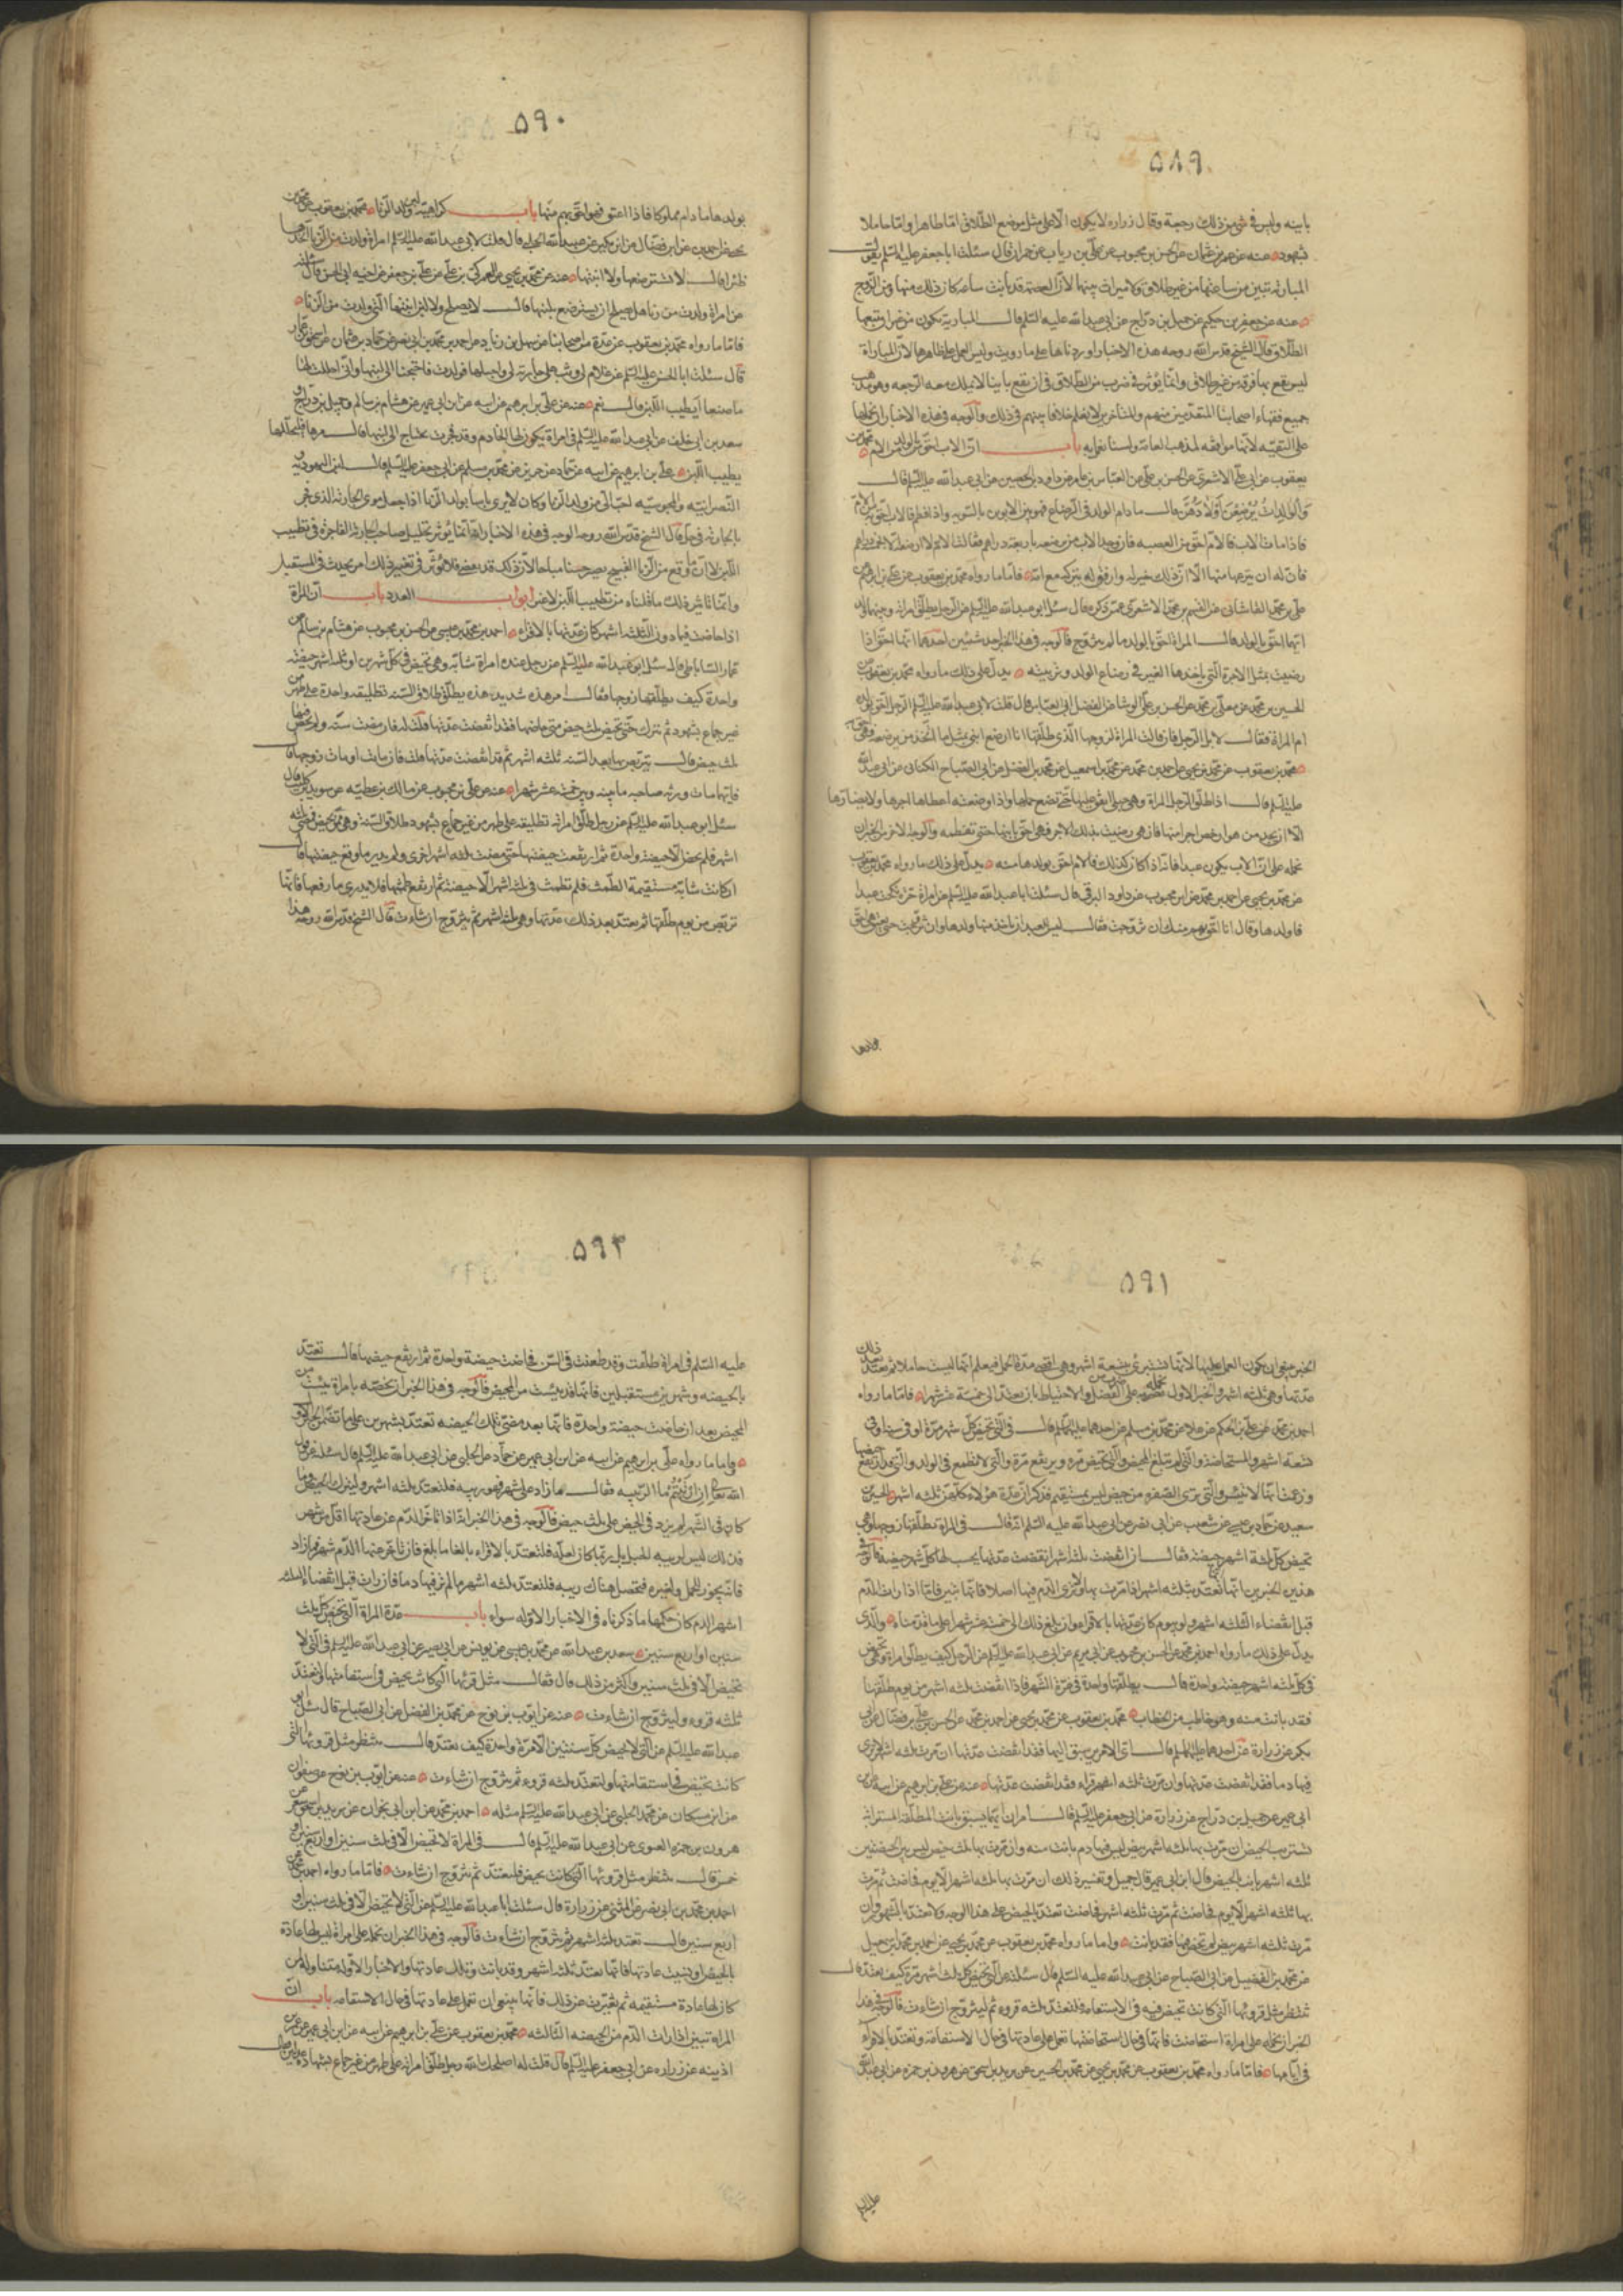 ۵۸۹
باينه وليس فى شئ من ذلك رجعة وقال زراره لا يكون الا على مثل موضع الطلاق اما طاهرا واما حاملا
بشهود عنه عن الحسن بن محبوب عن على بن رياب عن حمران قال سئلت ابا جعفر عليه السلم يقول
المباراة تبين من ساعتها من غير طلاق ولا ميراث بينهما لان العصمة قد بانت ساعة كان ذلك منها ومن الزوج
عنه عن جعفر بن حكيم عن جميل بن دراج عن ابى عبد الله عليه السلم قال المباراة يكون من غير ان يتبعها
الطلاق قال الشيخ قدس الله روحه هذه الاخبار اوردناها على ما رويت وليس العمل على ظاهرها لان المباراة
ليس يقع بها فرقه من غير طلاق وانما يؤثر فى ضرب من الطلاق فى ان يقع باينا لا يملك معه الرجعه وهو مذهب
جميع فقهاء اصحابنا المتقدمين منهم والمتاخرين لا نعلم خلافا بينهم فى ذلك والوجه فى هذه الاخبار ان نحملها
على التقيه لانها موافقه لمذهب العامة ولسنا نعمل به باب ان الاب احق بالولد من الام محمد بن
يعقوب عن ابى على الاشعرى عن الحسن بن على عن العباس بن عامر عن داود بن الحصين عن ابى عبد الله عليه السلم قال
والوالدات يرضعن اولادهن قال ما دام الولد فى الرضاع فهو بين الابوين بالسويه واذا فطم فالاب احق به من الام
فاذا مات الاب فالام احق من العصبه فان وجد الاب من يرضعه باربعة دراهم فقالت الام لا ارضعه الا بخمسة دراهم
فان له ان ينزعها منها الا ان ذلك خير له وارفق له يتركه مع امه فاما ما رواه محمد بن يعقوب عن على بن ابرهيم عن
على بن محمد القاشانى عن القسم بن محمد عن المنقرى عمن ذكره قال سئل ابو عبد الله عليه السلم عن الرجل يطلق امراته وبينهما ولد
ايهما احق بالولد قال المراة احق بالولد ما لم يتزوج فالوجه فى هذا الخبر احد شيئين احدهما انها احق اذا
رضيت بمثل الاجرة التى ياخذها الغير فى رضاع الولد وتربيته يدل على ذلك ما رواه محمد بن يعقوب عن
الحسين بن محمد عن معلى بن محمد عن الحسن بن على الوشا عن الفضل ابى العباس قال قلت لابى عبد الله عليه السلم الرجل احق بولده
ام المراة فقال لا بل الرجل فان قالت المراة لزوجها الذى طلقها انا ارضع ابنى بمثل ما تجد من يرضعه فهى احق به
محمد بن يعقوب عن محمد بن يحيى عن احمد بن محمد عن محمد بن اسمعيل عن محمد بن الفضيل عن ابى الصباح الكنانى عن ابى عبد الله
عليه السلم قال اذا طلق الرجل المراة وهى حبلى انفق عليها حتى تضع حملها واذا وضعته اعطاها اجرها ولا يضارها
الا ان يجد من هو ارخص اجرا منها فان هى رضيت بذلك الاجر فهى احق بابنها حتى تفطمه والوجه الاخر فى الخبر ان
نحمله على ان الاب يكون عبدا فانه اذا كان كذلك فالام احق بولدها منه يدل على ذلك ما رواه محمد بن يعقوب
عن محمد بن يحيى عن احمد بن محمد عن ابن محبوب عن داود الرقى قال سئلت ابا عبد الله عليه السلم عن امراة حرة نكحت عبدا
فاولدها وقال انا احق بهم منك ان تزوجت فقال ليس للعبد ان ياخذ منها ولدها وان تزوجت حتى يعتق هى احق
بولدها
۵۹۰
بولدها ما دام مملوكا فاذا اعتق فهو احق بهم منها باب كراهية لبن ولد الزنا محمد بن يعقوب عن محمد بن
يحيى عن احمد بن محمد عن ابن فضال عن ابن بكير عن عبيد الله الحلبى قال قلت لابى عبد الله عليه السلم امراة ولدت من الزنا اتخذها
ظئرا قال لا تسترضعها ولا ابنتها عنه عن محمد بن يحيى عن العمركى بن على عن على بن جعفر عن اخيه ابى الحسن قال سئلته
عن امراة ولدت من زنا هل يصلح ان يسترضع بلبنها قال لا يصلح ولا لبن ابنتها التى ولدت من الزنا
فاما ما رواه محمد بن يعقوب عن عدة من اصحابنا عن سهل بن زياد عن احمد بن محمد بن ابى نصر عن حماد بن عثمان عن اسحق بن عمار
قال سئلت ابا الحسن عليه السلم عن غلام لى وثب على جارية لى فاحبلها فولدت فاحتجنا الى لبنها وانى احللت لهما
ما صنعا ايطيب اللبن قال نعم عنه عن على بن ابرهيم عن ابيه عن ابن ابى عمير عن هشام بن سالم وجميل بن دراج و
سعد بن ابى خلف عن ابى عبد الله عليه السلم فى امراة يكون لها الخادم وقد فجرت تحتاج الى لبنها قال مرها فليحللها
يطيب اللبن على بن ابرهيم عن ابيه عن حماد عن حريز عن محمد بن مسلم عن ابى جعفر عليه السلم قال لبن اليهودية و
النصرانيه والمجوسيه احب الى من ولد الزنا وكان لا يرى باسا بولد الزنا اذا جعل مولى الجاريه الذى فجر
بالجارية فى حل قال الشيخ قدس الله روحه الوجه فى هذه الاخبار انه انما يؤثر تحليل صاحب الجاريه الفاجرة فى تطييب
اللبن لا ان ما وقع من الزنا القبيح يصير حسنا مباحا لان ذلك قد مضى فلا يؤثر فى تغييره ذلك امر يحدث فى المستقبل
وانما تاثير ذلك ما قلناه من تطييب اللبن لا غير ابواب العدد باب ان المراة
اذا حاضت فيما دون الثلثه اشهر كان عدتها بالاقراء احمد بن محمد بن عيسى عن الحسن بن محبوب عن هشام بن سالم عن
عمار الساباطى قال سئل ابو عبد الله عليه السلم عن رجل عنده امراة شابة وهى تحيض فى كل شهرين او ثلثة اشهر حيضة
واحدة كيف يطلقها زوجها فقال امر هذه شديد هذه يطلق طلاق السنه تطليقه واحدة على طهر من
غير جماع بشهود ثم تترك حتى تحيض ثلث حيض متى حاضتها فقد انقضت عدتها قلت له فان مضت سنه ولم تحض فيها
ثلث حيض قال يتربص بها بعد السنه ثلثه اشهر ثم قد انقضت عدتها قلت فان ماتت او مات زوجها قال
فايهما مات ورثه صاحبه ما بينه وبين خمسة عشر شهرا عنه عن على بن محبوب عن مالك بن عطيه عن سورة بن كليب قال
سئل ابو عبد الله عليه السلم عن رجل طلق امراته تطليقه على طهر من غير جماع بشهود طلاق السنة وهى ممن تحيض فمضى ثلثه
اشهر فلم تحض الا حيضة واحدة ثم ارتفعت حيضتها حتى مضت ثلثه اشهر اخرى ولم يدر ما رفع حيضتها قال
ان كانت شابه مستقيمة الطمث فلم تطمث فى ثلثه اشهر الا حيضة ثم ارتفع طمثها فلا يدرى ما رفعها فانها
تتربص من يوم طلقها ثم يعتد بعد ذلك عدتها وهى ثلثه اشهر ثم يتزوج ان شاءت قال الشيخ قدس الله روحه هذا
۵۹۱
الخبر ينبغى ان يكون العمل عليه لانها تستبرئ بتسعة اشهر وهى اقصى مدة الحمل فيعلم انها ليست حاملا ثم تعتد بعد ذلك
عدتها وهى ثلثه اشهر والخبر الاول نحمله على الفضل والاحتياط بان تعتد الى خمسة عشر شهرا فاما ما رواه
احمد بن محمد عن على بن الحكم عن علا عن محمد بن مسلم عن احدهما عليهما السلم قال فى التى تحيض كل شهر مرة او فى ستة او فى
سبعة اشهر والمستحاضة والتى لم تبلغ المحيض والتى تحيض مره ويرتفع مرة والتى لا تطمع فى الولد والتى قد ارتفع حيضها
وزعمت انها لا تيئس والتى ترى الصفره من حيض ليس بمستقيم فذكر ان عدة هؤلاء كلهن ثلثه اشهر الحسين بن
سعيد عن حماد بن عيسى عن شعيب عن ابى بصير عن ابى عبد الله عليه السلم انه قال فى المراة يطلقها زوجها وهى
تحيض كل ثلثة اشهر حيضة فقال اذا انقضت ثلثة اشهر انقضت عدتها يحسب لها كل شهر حيضة فالوجه فى
هذين الخبرين انها تعتد بثلثه اشهر اذا مرت بها ولا ترى الدم فيها اصلا فانها تبين فاما اذا رات الدم
قبل انقضاء الثلثه اشهر ولو بيوم كان عدتها بالاقراء وان بلغ ذلك الى خمسة عشر شهرا على ما قدمناه والذى
يدل على ذلك ما رواه احمد بن محمد عن الحسن بن محبوب عن ابى مريم عن ابى عبد الله عليه السلم عن الرجل كيف يطلق امراته وهى تحيض
فى كل ثلثه اشهر حيضة واحدة قال يطلقها واحدة فى غرة الشهر فاذا انقضت ثلثه اشهر من يوم طلقها
فقد بانت منه وهو خاطب من الخطاب محمد بن يعقوب عن محمد بن يحيى عن احمد بن محمد عن الحسن بن على بن فضال عن ابن
بكير عن زرارة عن احدهما عليهما السلم قال اى الامرين سبق اليها فقد انقضت عدتها ان مرت ثلثه اشهر لا ترى
فيها دما فقد انقضت عدتها وان مرت ثلثه اقراء فقد انقضت عدتها عنه عن على بن ابرهيم عن ابيه عن ابن
ابى عمير عن جميل بن دراج عن زرارة عن ابى جعفر عليه السلم قال امران ايهما سبق بانت المطلقة المسترابه
تستريب المحيض ان مرت بها ثلثه اشهر بيض ليس فيها دم بانت منه وان مرت بها ثلث حيض ليس بين الحيضتين
ثلثه اشهر بانت بالحيض قال ابن ابى عمير قال جميل وتفسيره ذلك ان مرت بها ثلثه اشهر الا يوم فحاضت ثم مرت
بها ثلثه اشهر الا يوم فحاضت ثم مرت ثلثه اشهر فحاضت تعتد بالحيض على هذا الوجه ولا تعتد بالشهور وان
مرت ثلثه اشهر بيض لم تحض فيها فقد بانت واما ما رواه محمد بن يعقوب عن محمد بن يحيى عن احمد بن محمد بن اسمعيل
عن محمد بن الفضيل عن ابى الصباح عن ابى عبد الله عليه السلم قال سئلته عن التى تحيض كل ثلث اشهر مرة كيف تعتد قال
تنتظر مثل قروئها التى كانت تحيض فيه فى الاستقامه فلتعتد ثلثه قروء ثم ليتزوج ان شاءت فالوجه فى هذا
الخبر ان نحمله على امراة استحاضت فانها فى حال استحاضتها تعمل على عادتها فى حال الاستقامة وتعتد بالاقراء
فى ايامها فاما ما رواه محمد بن يعقوب عن محمد بن يحيى عن محمد بن الحسين عن يزيد بن اسحق عن هرون بن حمزه عن ابى عبد الله
عليه السلم
۵۹۲
عليه السلم فى امراة طلقت وقد طعنت فى السن فحاضت حيضة واحدة ثم ارتفع حيضها قال تعتد
بالحيضه وشهرين مستقبلين فانها قد يئست من المحيض فالوجه فى هذا الخبر ان نخصه بامراة يئست من
المحيض بعد ان حاضت حيضة واحدة فانها بعد مضى تلك الحيضه تعتد بشهرين على ما تضمن الخبر
واما ما رواه على بن ابرهيم عن ابيه عن ابن ابى عمير عن حماد عن الحلبى عن ابى عبد الله عليه السلم قال سئلته عن قول
الله تعالى ان ارتبتم ما الريبه فقال ما زاد على شهر فهو ريبه فلتعتد ثلثه اشهر وليترك الحيض وما
كان فى الشهر لم يزد فى الحيض على ثلث حيض فالوجه فى هذا الخبر انه اذا تاخر الدم عن عادتها اقل من شهر
فذلك ليس لريبه الحبل بل ربما كان لعلة فلتعتد بالاقراء بالغا ما بلغ فان تاخر عنها الدم شهرا فما زاد
فانه يجوز للحمل ولغيره فيحصل هناك ريبه فلتعتد ثلثه اشهر ما لم تر فيها دما فان رات قبل انقضاء الثلثه
اشهر الدم كان حكمها ما ذكرناه فى الاخبار الاوله سواء باب عدة المراة التى تحيض كل ثلث
سنين او اربع سنين سعد بن عبد الله عن محمد بن عيسى عن يونس عن ابى بصير عن ابى عبد الله عليه السلم فى التى لا
تحيض الا فى ثلث سنين واكثر من ذلك قال فقال مثل قرئها التى كانت تحيض فى استقامتها ولتعتد
ثلثه قروء وليتزوج ان شاءت عنه عن ايوب بن نوح عن محمد بن الفضيل عن ابى الصباح قال سئل ابو
عبد الله عليه السلم عن التى لا تحيض كل سنتين الا مرة واحدة كيف تعتد قال تنتظر مثل قروئها التى
كانت تحيض فى استقامتها ولتعتد ثلثه قروء ثم يتزوج ان شاءت عنه عن ايوب بن نوح عن صفوان
عن ابن مسكان عن محمد الحلبى عن ابى عبد الله عليه السلم مثله احمد بن محمد عن ابن ابى نجران عن يزيد بن اسحق شعر عن
هرون بن حمزه الغنوى عن ابى عبد الله عليه السلم قال فى المراة لا تحيض الا فى ثلث سنين او اربع سنين او
خمس قال تنتظر مثل قروئها التى كانت تحيض فلتعتد ثم يتزوج ان شاءت فاما ما رواه احمد بن محمد
احمد بن محمد بن ابى نصر عن المثنى عن زرارة قال سئلت ابا عبد الله عليه السلم عن التى لا تحيض الا فى ثلث سنين او
اربع سنين قال تعتد ثلثه اشهر ثم يتزوج ان شاءت فالوجه فى هذا الخبر ان نحمله على امراة ليس لها عادة
بالحيض او نسيت عادتها فانها تعتد ثلثه اشهر وقد بانت وتلك عادتها والاخبار الاوله متناوله لمن
كان لها عادة مستقيمه ثم تغيرت عن ذلك فانها ينبغى ان تعمل على عادتها فى حال الاستقامه باب ان
المراة تبين اذا رات الدم من الحيضه الثالثه محمد بن يعقوب عن على بن ابرهيم عن ابيه عن ابن ابى عمير عن عمر بن
اذينه عن زراره عن ابى جعفر عليه السلم قال قلت له اصلحك الله رجل طلق امراته على طهر من غير جماع بشهادة عدلين قال